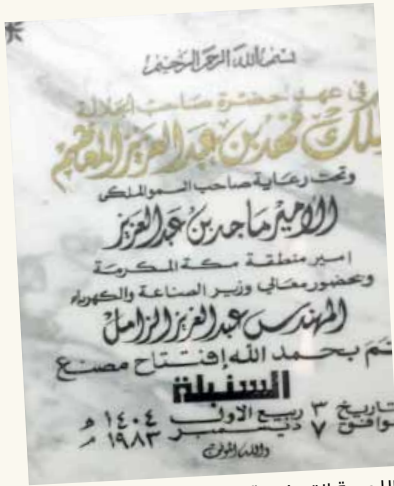 بسم الله الرحمن الرحيم
في عهد حضرة صاحب الجلالة
ملك فهد بن عبد العزيز المعظم
وتحت رعاية صاحب السمو الملكي
الأمير ماجد بن عبد العزيز
امير منطقة مكة المكرمة
وبحضور معالي وزير الصناعة والكهرباء
المهندس عبد العزيز الزامل
تم بحمد الله إفتتاح مصنع
السنبلة
تاريخ ٣ ربيع الاول ١٤٠٤ هـ
وافق ٧ ديسمبر ١٩٨٣ م
والله الموفق